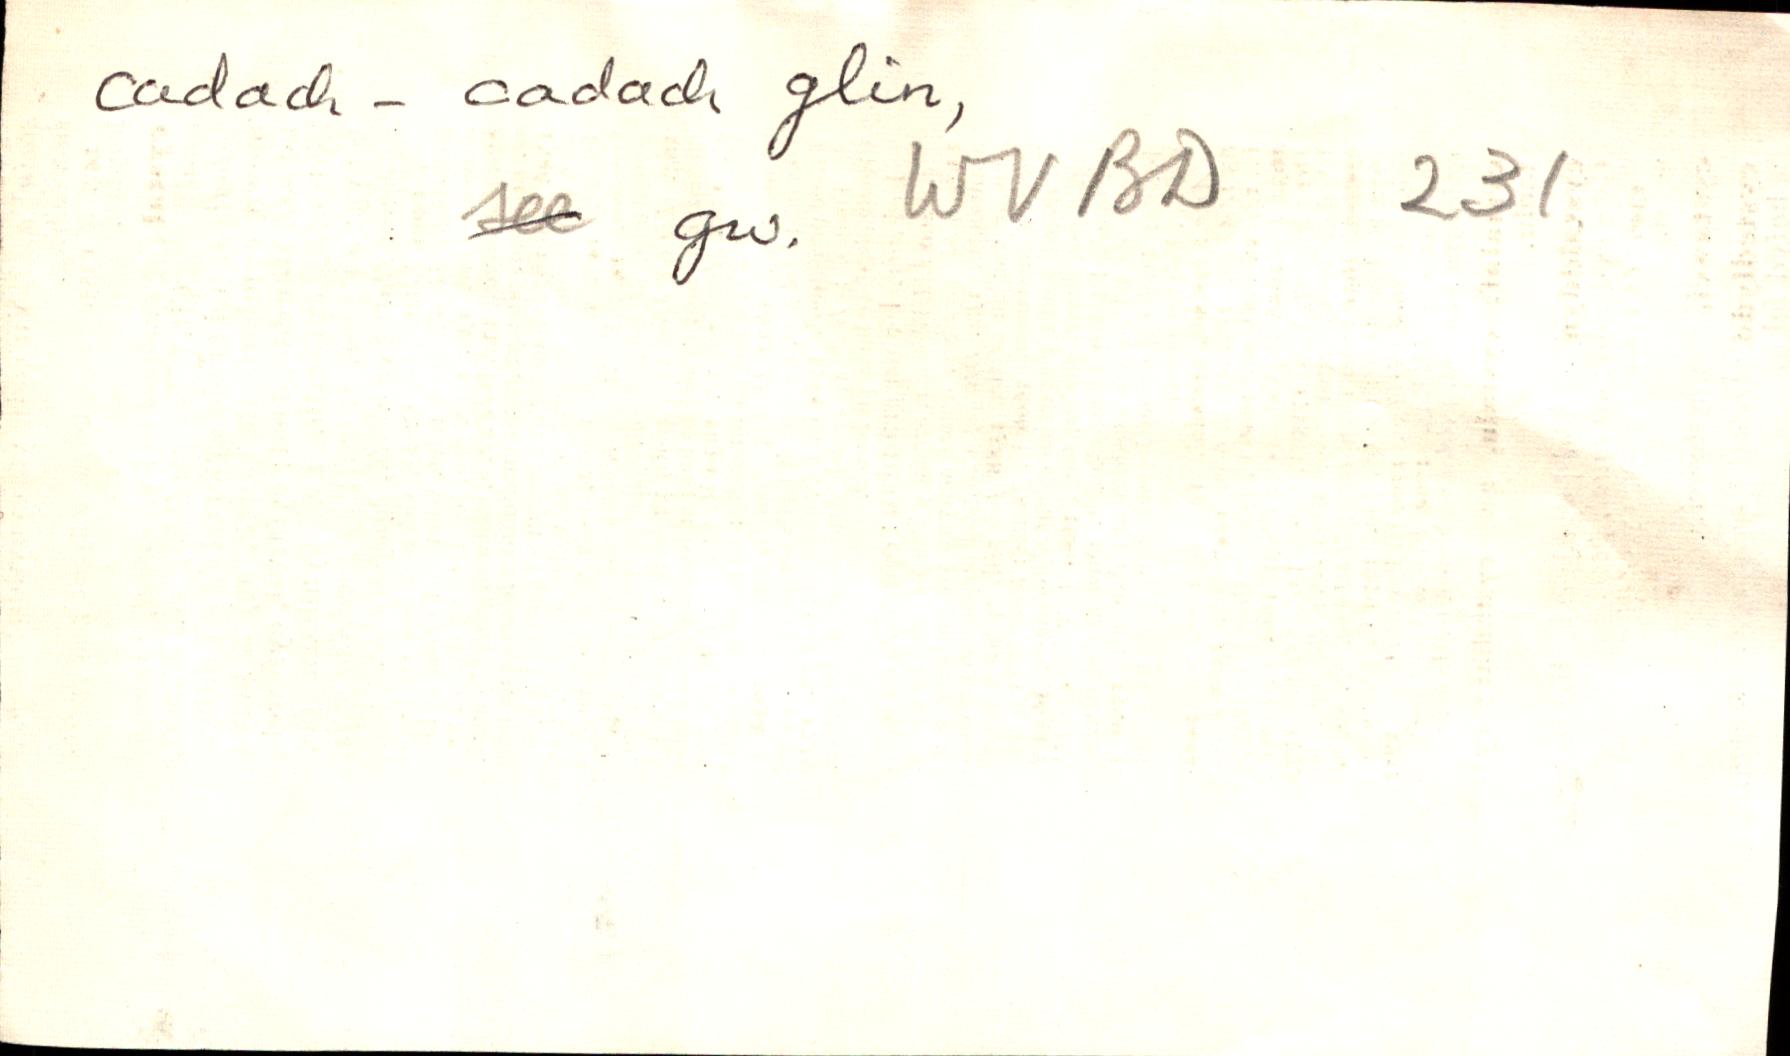 cadach - cadach glin,
see gw. WVBD 231